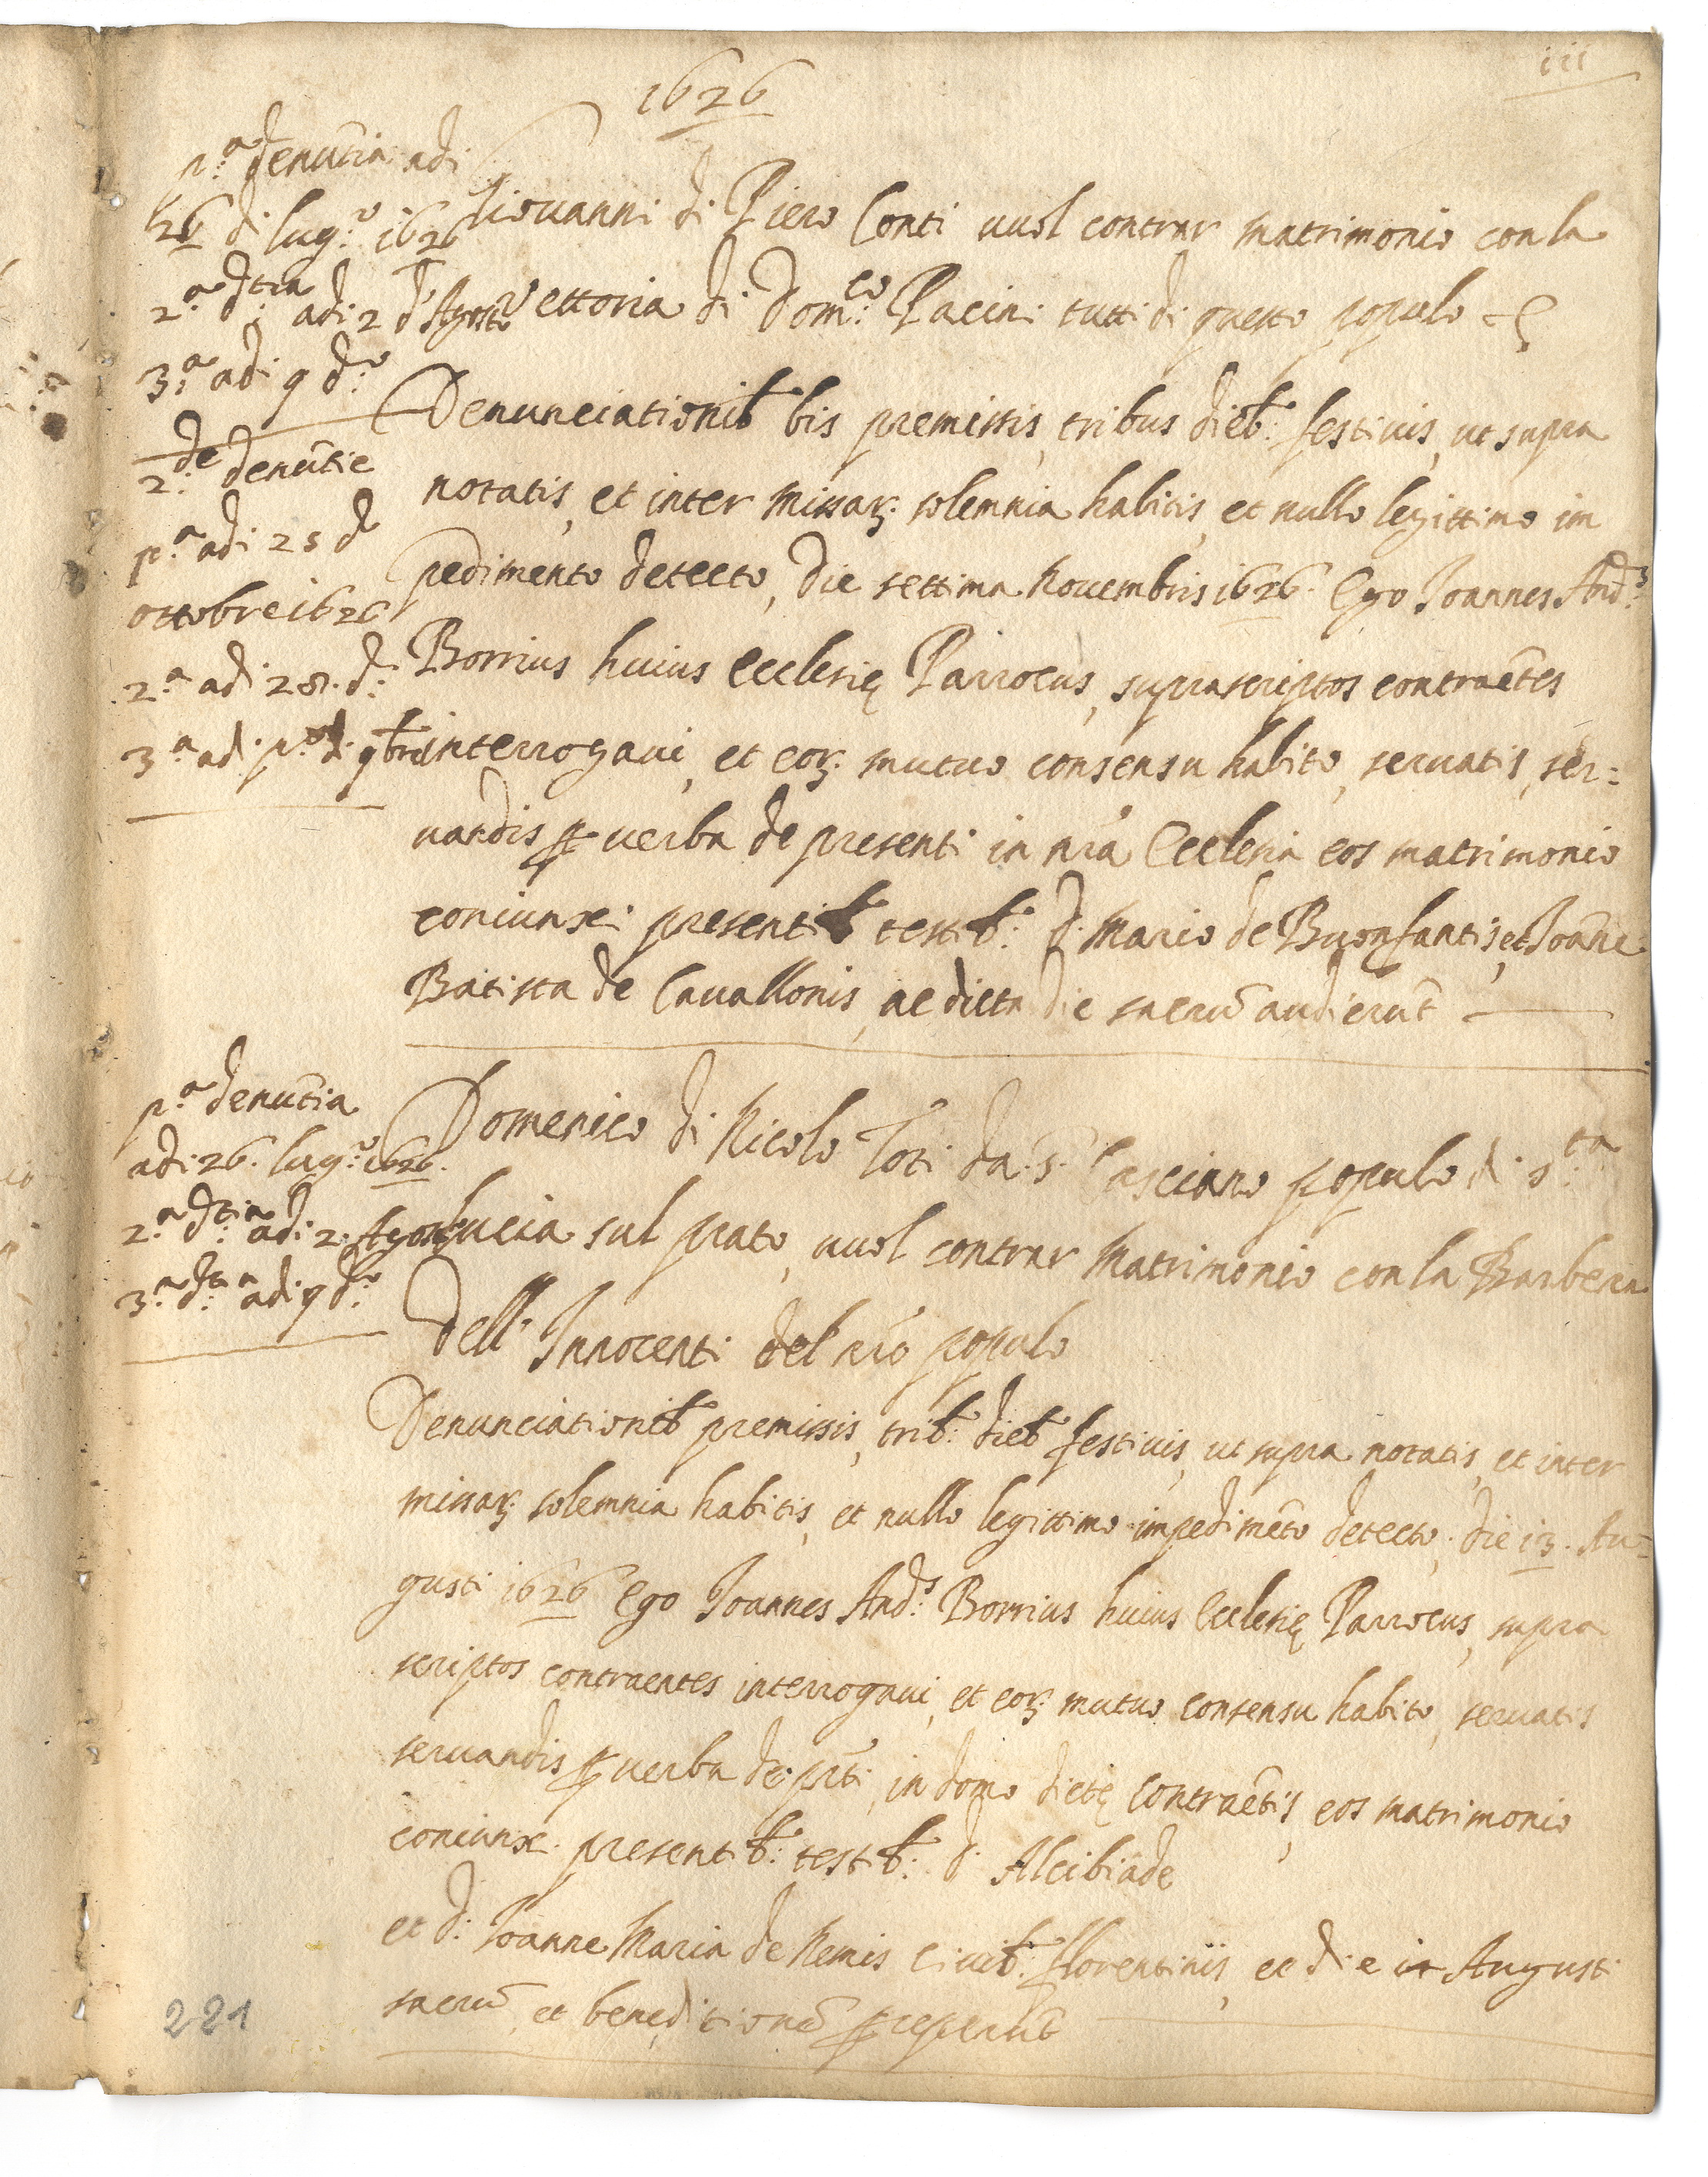 111
1626
p.ª denũtia adi
26 di lug.º 1626
2.ª d.tia adi 2 d'Agosto
3.ª adi 9 d.º
2.de denũtie
p.ª adi 25 d
ottobre 1626
2.ª adi 28. d.
3.ª adi p.º di 9bre
Giovanni di Piero Conti vuol contrar matrimonio con la
Vettoria di Dom.co Pacini tutti di questo populo
Denunciationib bis premissis, tribus dieb: festiuis, ut supra
notatis, et inter missar: solemnia habitis, et nullo legittimo im
pedimento detecto, die settima Nouembris 1626. Ego Joannes And.s
Borrius huius Ecclesię Parrocus, suprascriptos contraẽtes
interrogaui, et eor: mutuo consensu habito, seruatis, ser=
uandis p uerba de presenti in nrã Ecclesia eos matrimonio
coniunxi presentib testib: d. Mario de Buonfantis, et Joãne
Batista de Cauallonis, ac dicta die sacrũ audierũt
p.ª denũtia
adi 26. lug.º 1626.
2.ª d.tia adi 2. Agosto
3.ª d.tia adi 9 d.º
Domenico di Nicolo Toti da S. Casciano populo di S.ta
Lucia sul prato, vuol contrar matrimonio con la Barbera
dell' Innocenti del nrõ populo
Denunciationib premissis, trib: dieb festiuis, ut supra notatis, et inter
missar: solemnia habitis, et nullo legittimo impedimẽto detecto, die 13. Au=
gusti 1626 Ego Joannes And.s Borrius huius Ecclesię Parrocus, supra
scriptos contraentes interrogaui, et eor: mutuo consensu habito, seruatis
seruandis p uerba de prñti, in domo dictę contraẽtis, eos matrimonio
coniunxi presentib: testib: d. Alcibiade
et d. Joanne Maria de Nemis ciuib: florentinis, et die Augusti
sacrũ, et beneditionẽ pceperũt
221